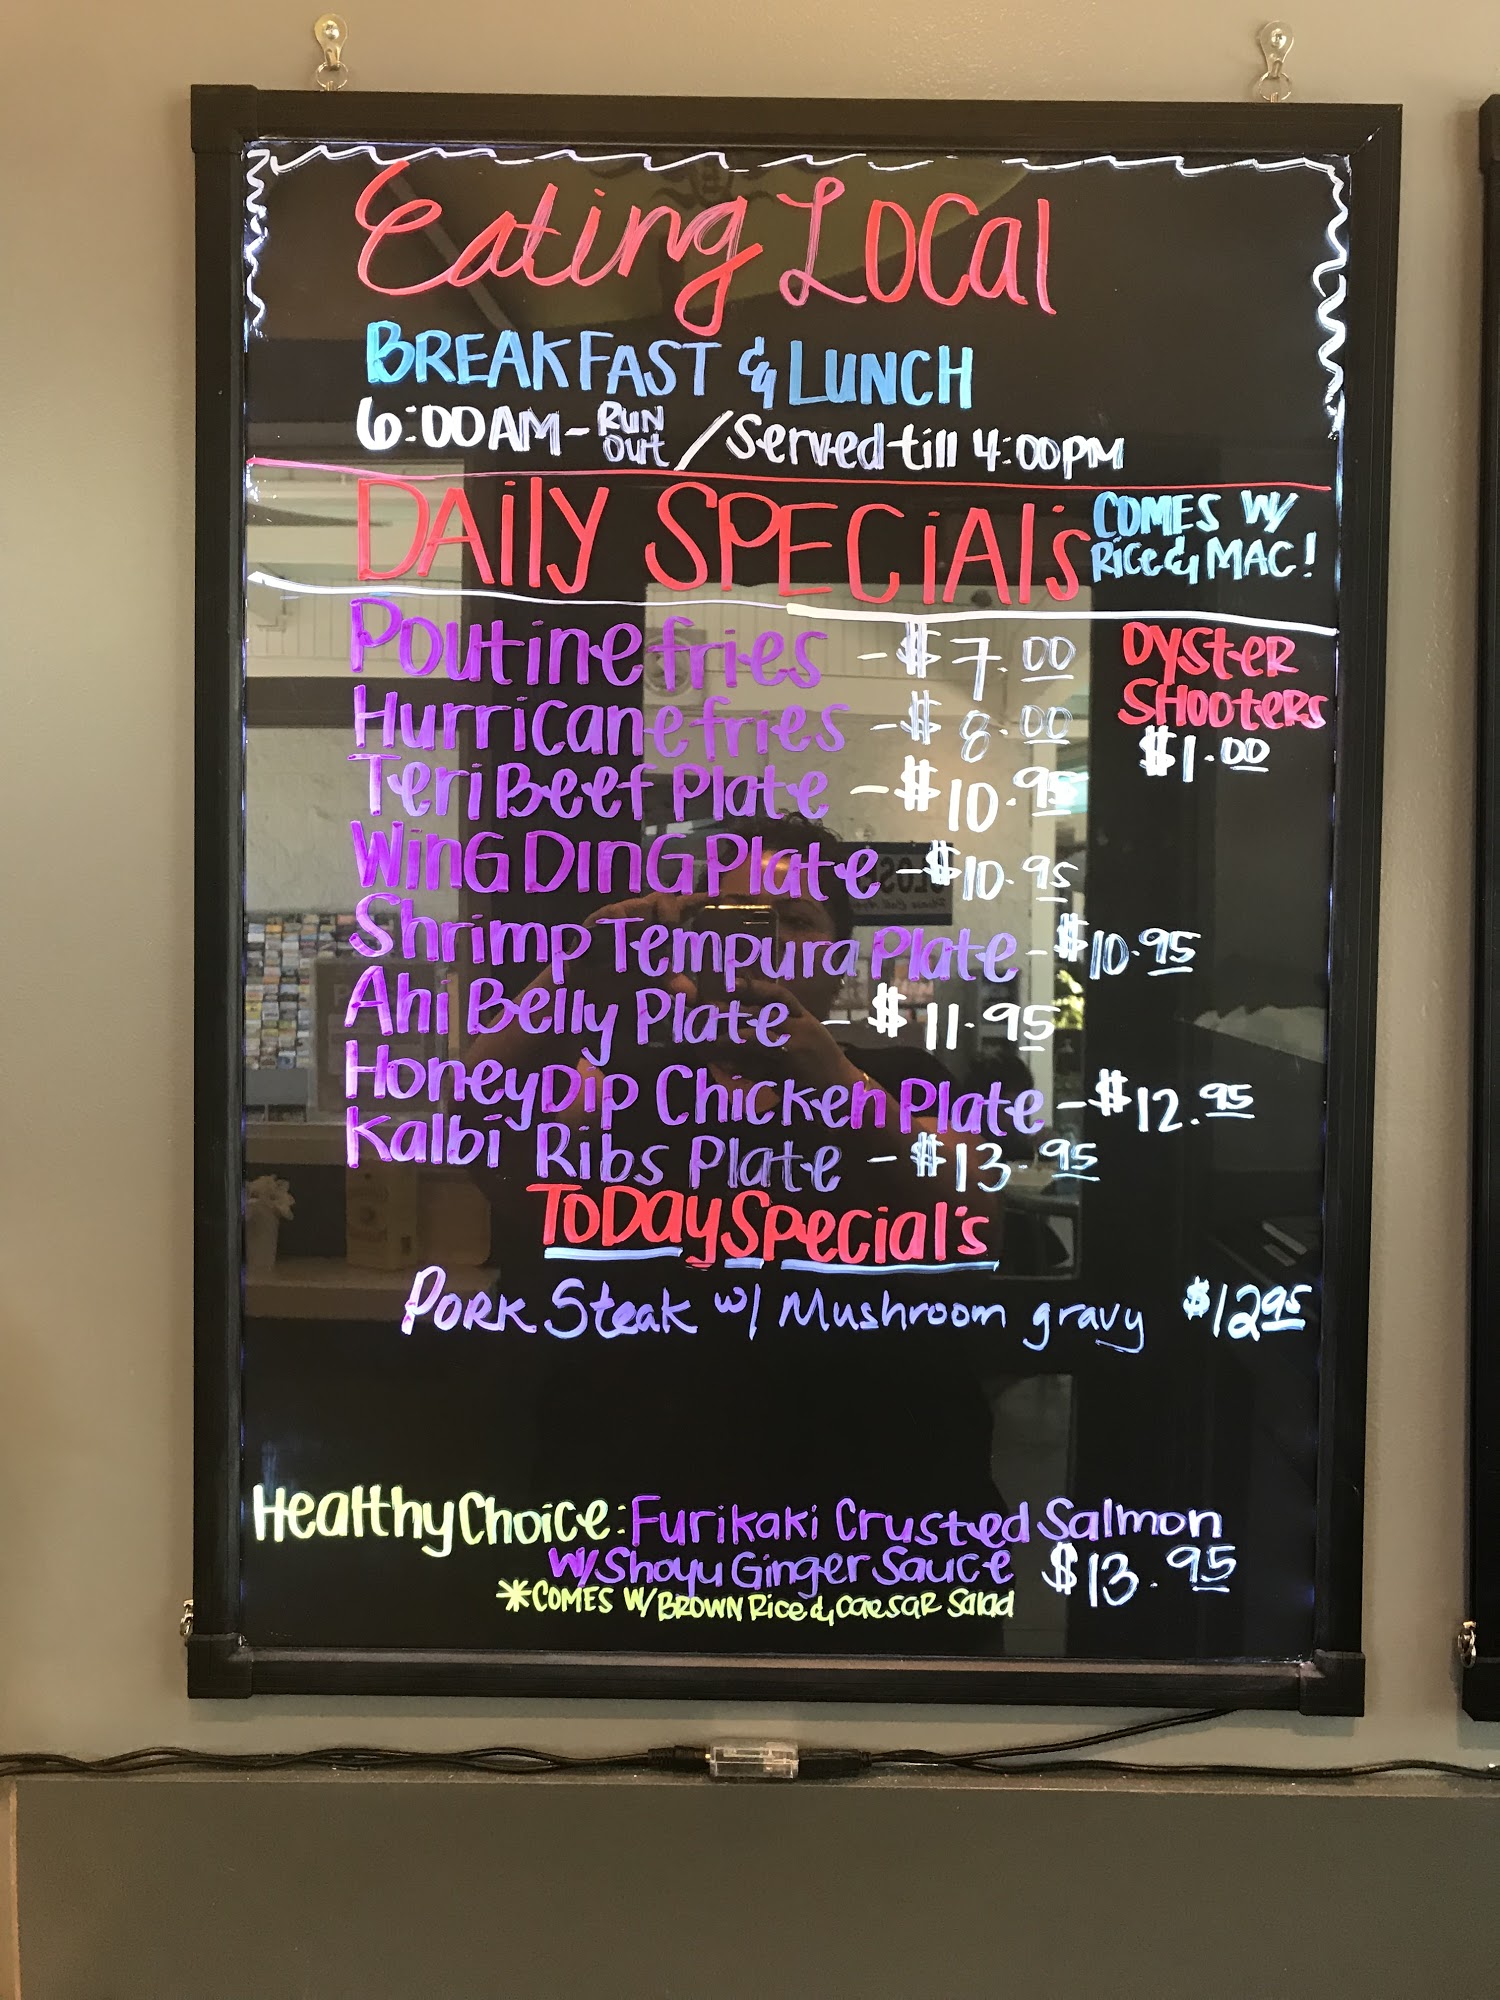 Eating Local
BREAKFAST & LUNCH
6:00AM - RUN OUT / Served till 4:00PM
DAily SPECiAl's
COMES W/
Rice & MAC!
Poutine fries - $7.00
Hurricane fries - $8.00
Teri Beef Plate - $10.95
WinG DinG Plate - $10.95
Shrimp Tempura Plate - $10.95
Ahi Belly Plate - $11.95
Honey Dip Chicken Plate - $12.95
Kalbi Ribs Plate - $13.95
OysteR
SHOOteRs
$1.00
ToDay Special's
PORK Steak w/ Mushroom gravy $12.95
Healthy Choice: Furikaki Crusted Salmon
W/ Shoyu Ginger Sauce $13.95
*COMES W/ BROWN Rice & CaeSAR Salad